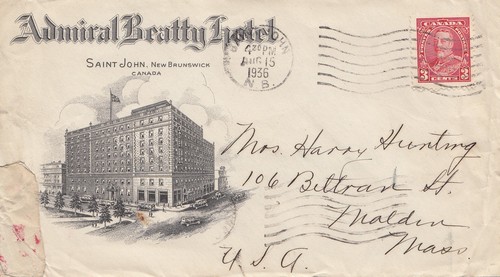 Admiral Beatty Hotel
SAINT JOHN, NEW BRUNSWICK
CANADA
430 PM
AUG 15
1936
N.B.
CANADA
3 3
CENTS
Mrs. Harry Hunting
106 Beltran St.
Malden
Mass.
U.S.A.